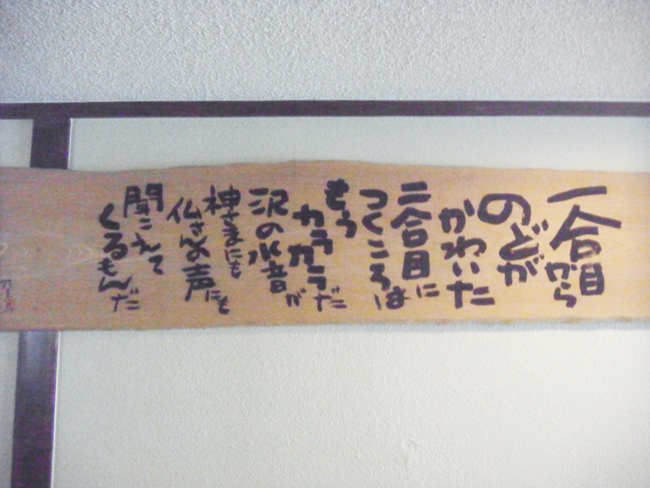 一合目から
のどが
かわいた
二合目に
つくころは
もう
カラカラだ
沢の水音が
神さまにも
仏さんの声にも
聞こえて
くるもんだ